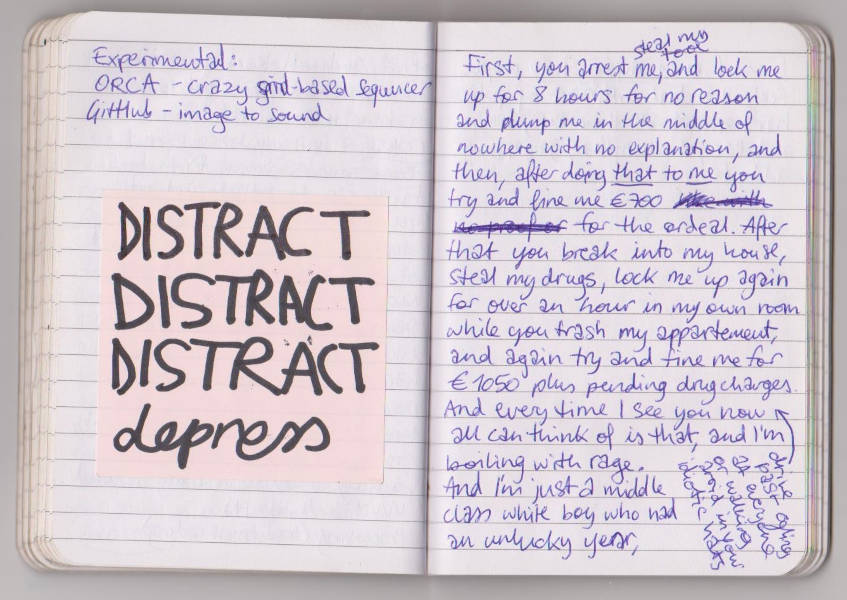 Experimental:
ORCA - crazy grid-based sequencer
GitHub - image to sound
DISTRACT
DISTRACT
DISTRACT
depress
steal my
tool
First, you arrest me, and lock me
up for 8 hours for no reason
and dump me in the middle of
nowhere with no explanation, and
then, after doing that to me you
try and fine me €700
for the ordeal. After
that you break into my house,
steal my drugs, lock me up again
for over an hour in my own room
while you trash my appartement,
and again try and fine me for
€1050 plus pending drugcharges.
And every time I see you now
all can think of is that, and I'm
boiling with rage.
And I'm just a middle
class white boy who had
an unlucky year,
drive
past ogling
at everyone
or walking
in your
idiotic hats